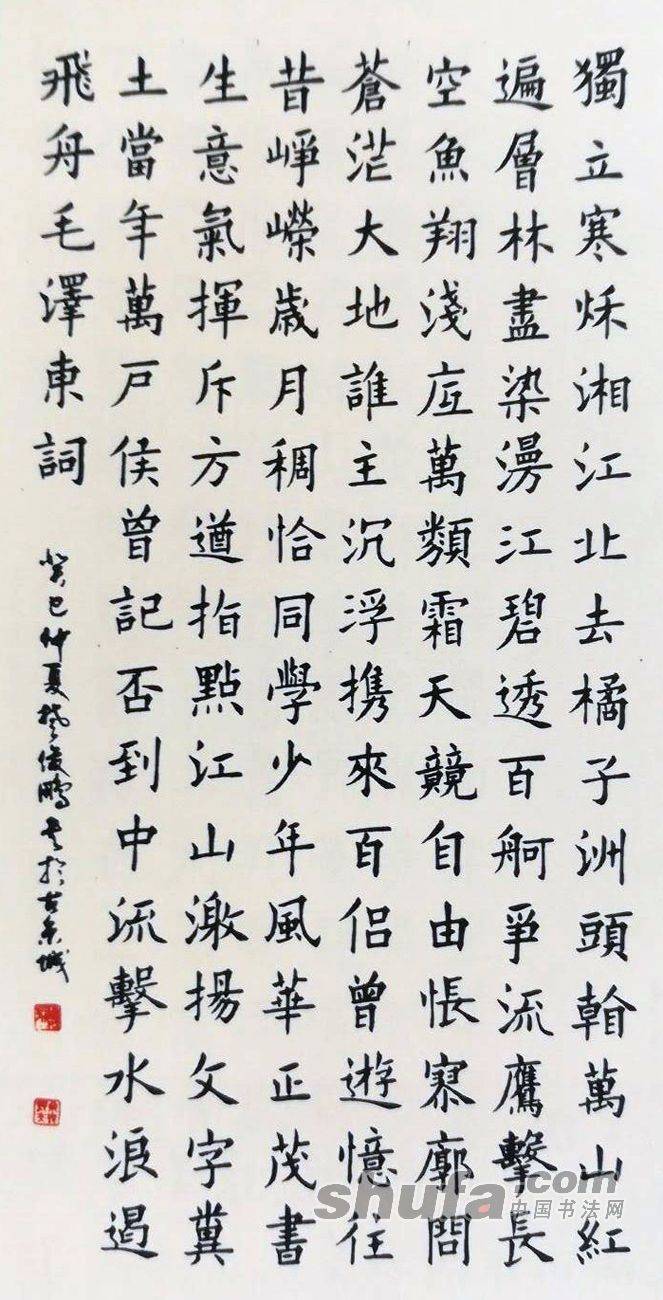 獨立寒秌湘江北去橘子洲頭看萬山紅
遍層林盡染漫江碧透百舸爭流鷹擊長
空魚翔淺底萬類霜天競自由悵寥廓問
蒼茫大地誰主沉浮携來百侶曾遊憶往
昔崢嶸歲月稠恰同學少年風華正茂書
生意氣揮斥方遒指點江山激揚文字糞
土當年萬戶侯曾記否到中流擊水浪遏
飛舟毛澤東詞
癸巳仲夏俊鵬书於古京城
shufa.com
中国书法网